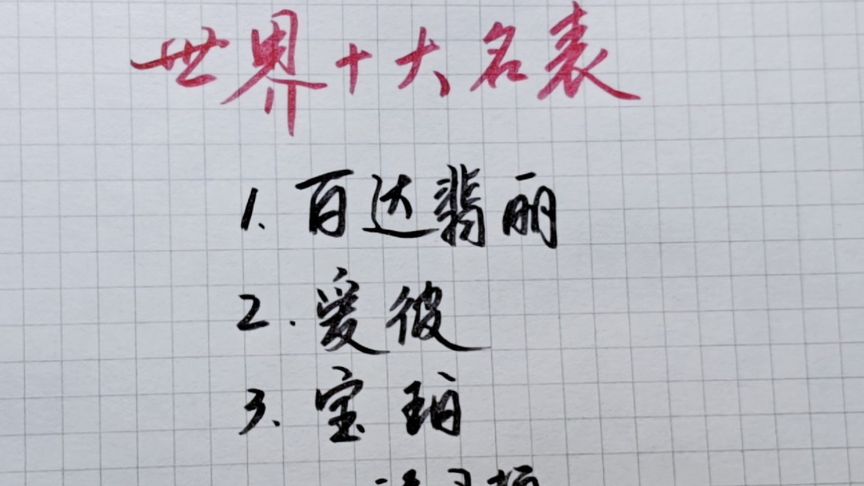 世界十大名表
1. 百达翡丽
2. 爱彼
3. 宝珀